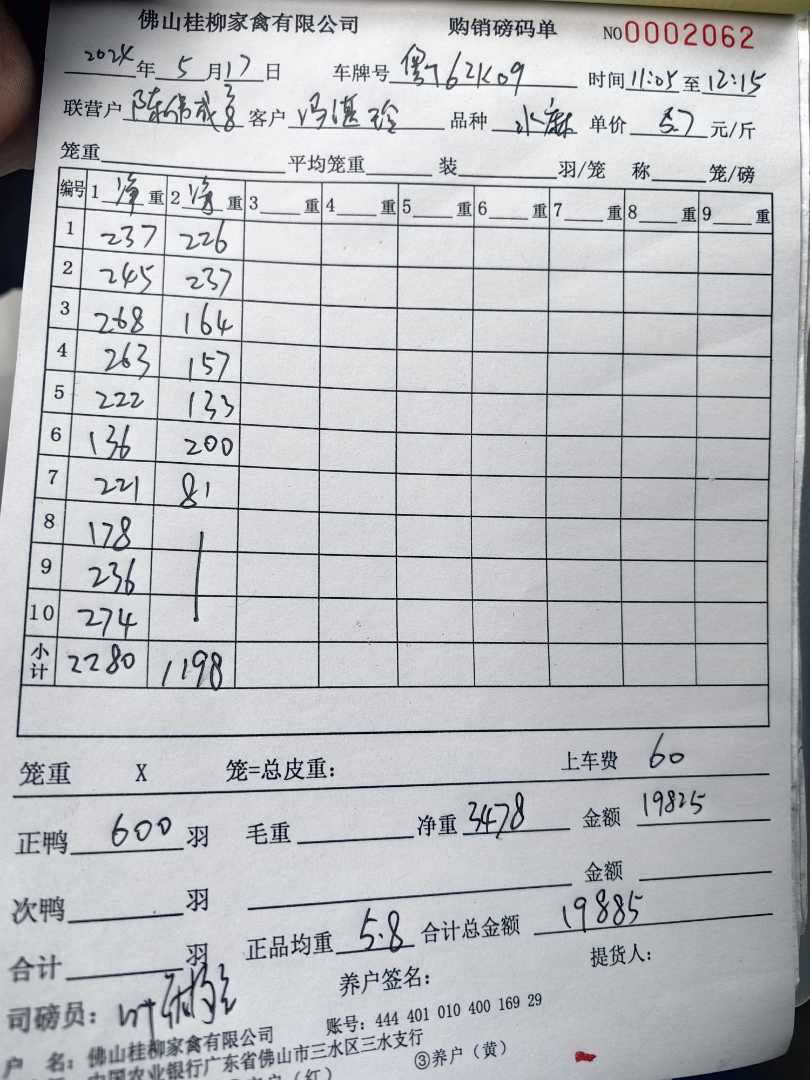 佛山桂柳家禽有限公司 购销磅码单 NO0002062
2024年5月17日 车牌号 62K09 时间11:05至12:15
联营户 陈伟成 客户 冯湛玲 品种 水麻 单价 5.7 元/斤
笼重 平均笼重 装 羽/笼 称 笼/磅
编号 1 净 重 2 净 重 3 重 4 重 5 重 6 重 7 重 8 重 9 重
1 237 226
2 245 237
3 268 164
4 263 157
5 222 133
6 136 200
7 221 81
8 178
9 236
10 274
小计 2280 1198
笼重 X 笼=总皮重: 上车费 60
正鸭 600 羽 毛重 净重 3478 金额 19825
次鸭 羽 金额
合计 羽 正品均重 5.8 合计总金额 19885
司磅员: 养户签名: 提货人:
户 名: 佛山桂柳家禽有限公司 账号: 444 401 010 400 169 29
中国农业银行广东省佛山市三水区三水支行
(红) ③养户(黄)